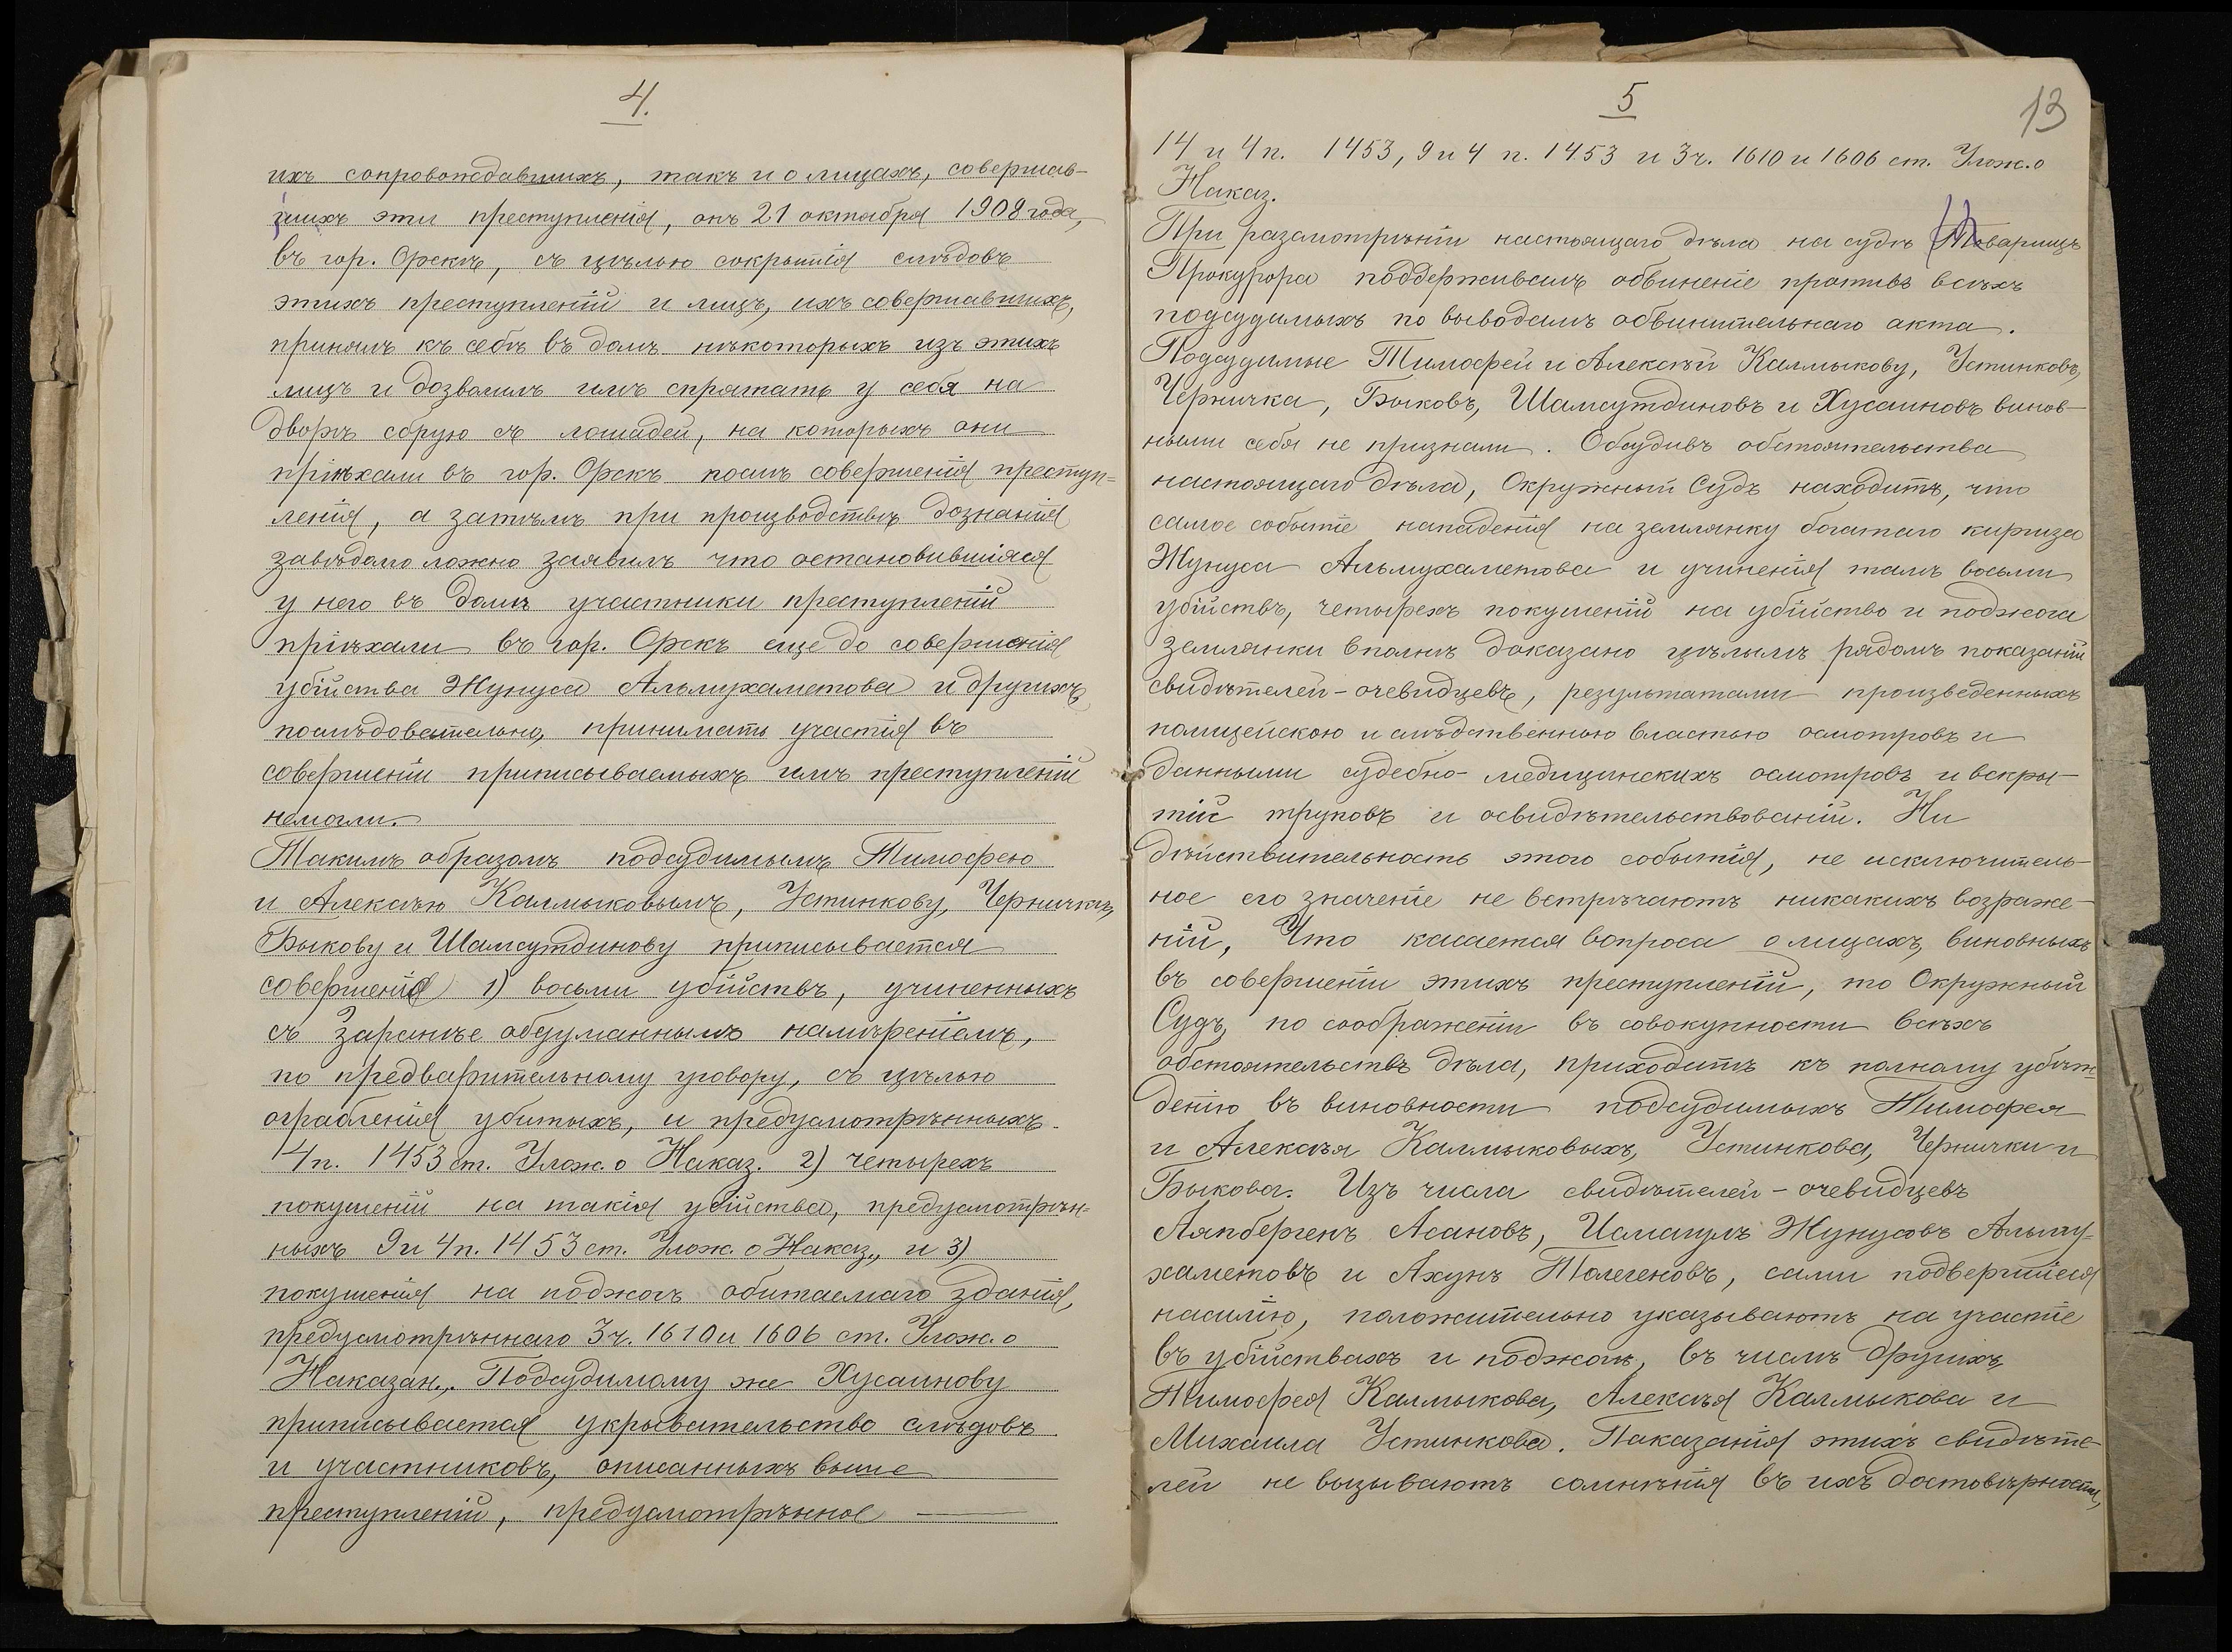 4.
ихъ сопровождавшихъ, такъ и о лицахъ, совершав-
шихъ эти преступленія, онъ 21 октября 1908 года,
въ гор. Орскѣ, съ цѣлью сокрытія слѣдовъ
этихъ преступленій и лицъ, ихъ совершавшихъ,
принялъ къ себѣ въ домъ нѣкоторыхъ изъ этихъ
лицъ и дозволилъ имъ спрятать у себя на
дворѣ сбрую съ лошадей, на которыхъ они
пріѣхали въ гор. Орскъ послѣ совершенія преступ=
ленія, а затѣмъ при производствѣ дознанія
завѣдомо ложно заявилъ что остановившіяся
у него въ домѣ участники преступленій
пріѣхали въ гор. Орскъ еще до совершенія
убійства Жунуса Альмухаметова и другихъ
послѣдовательно, принимать участія въ
совершеніи приписываемыхъ имъ преступленій
немогли.
Такимъ образомъ подсудимымъ Тимофею
и Алексѣю Калмыковымъ, Устинкову, Черничкѣ,
Быкову и Шамсутдинову приписывается
совершеніе 1) восьми убійствъ, учиненныхъ
съ заранѣе обдуманнымъ намѣреніемъ,
по предварительному уговору, съ цѣлью
ограбленія убитыхъ, и предусмотрѣнныхъ
4 п. 1453 ст. Улож. о Наказ. 2) четырехъ
покушеній на такія убійства, предусмотрѣн-
ныхъ 9 и 4 п. 1453 ст. Улож. о Наказ., и 3)
покушенія на поджогъ обитаемаго зданія,
предусмотрѣннаго 3 ч. 1610 и 1606 ст. Улож. о
Наказан.. Подсудимому же Хусаинову
приписывается укрывательство слѣдовъ
и участниковъ, описанныхъ выше
преступленій, предусмотрѣнное
5
13
14 и 4 п. 1453, 9 и 4 п. 1453 и 3 ч. 1610 и 1606 ст. Улож. о
Наказ.
При разсмотрѣніи настоящаго дѣла на судѣ Товарищъ
Прокурора поддерживалъ обвиненіе противъ всѣхъ
подсудимыхъ по выводамъ обвинительнаго акта.
Подсудимые Тимофей и Алексѣй Калмыковы, Устинковъ,
Черничка, Быковъ, Шамсутдиновъ и Хусаиновъ винов-
ными себя не признали. Обсудивъ обстоятельства
настоящаго дѣла, Окружный Судъ находитъ, что
самое событіе нападенія на землянку богатаго киргиза
Жунуса Альмухаметова и учиненія тамъ восьми
убійствъ, четырехъ покушеній на убійство и поджога
землянки вполнѣ доказано цѣлымъ рядомъ показаній
свидѣтелей-очевидцевъ, результатами произведенныхъ
полицейскою и слѣдственною властью осмотровъ и
данными судебно-медицинскихъ осмотровъ и вскры-
тій труповъ и освидѣтельствованій. Ни
дѣйствительность этого событія, не исключитель-
ное его значеніе не встрѣчаютъ никакихъ возраже-
ній, Что касается вопроса о лицахъ, виновныхъ
въ совершеніи этихъ преступленій, то Окружный
Судъ, по соображеніи въ совокупности всѣхъ
обстоятельствъ дѣла, приходитъ къ полному убѣж=
денію въ виновности подсудимыхъ Тимофея
и Алексѣя Калмыковыхъ, Устинкова, Чернички и
Быкова. Изъ числа свидѣтелей-очевидцевъ
Аяпбергенъ Асановъ, Исмаилъ Жунусовъ Альму-
хаметовъ и Ахунъ Толегеновъ, сами подвергшіеся
насилію, положительно указываютъ на участіе
въ убійствахъ и поджогѣ, въ числѣ другихъ
Тимофея Калмыкова, Алексѣя Калмыкова и
Михаила Устинкова. Показанія этихъ свидѣте-
лей не вызываютъ сомнѣнія въ ихъ достовѣрности,